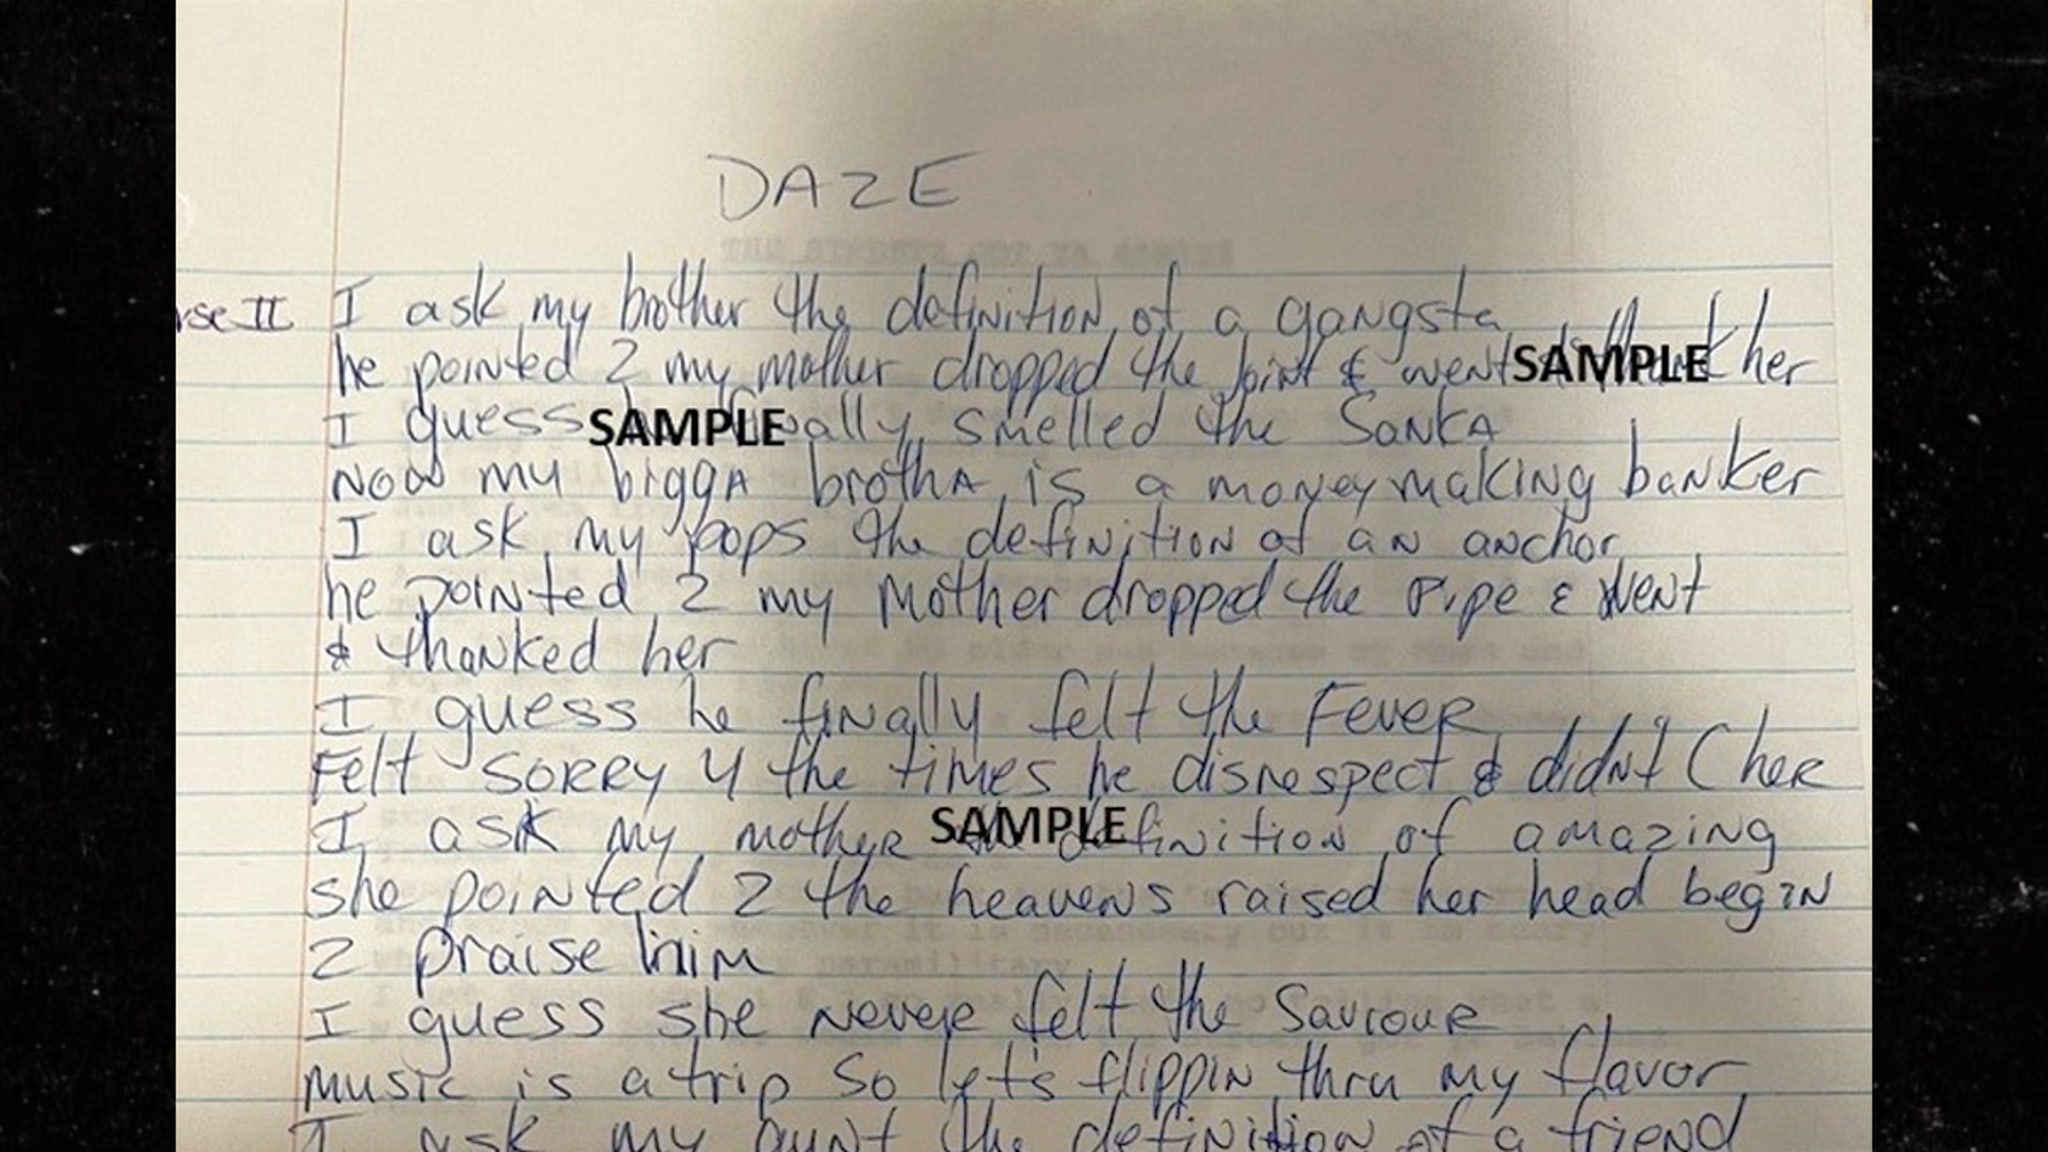 DAZE
rse II I ask my brother the definition of a gangsta
he pointed 2 my mother dropped the joint & went SAMPLE her
I guess SAMPLE finally smelled the SankA
Now my biggA brothA is a money making banker
I ask my pops the definition of an anchor
he pointed 2 my Mother dropped the Pipe & Went
& thanked her
I guess he finally felt the Fever
Felt SORRY 4 the times he disrespect & didn't C her
I ask my mother SAMPLE definition of amazing
she pointed 2 the heavens raised her head begin
2 praise him
I guess she never felt the Saviour
music is a trip so let's flippin thru my flavor
I ask my aunt the definition of a friend